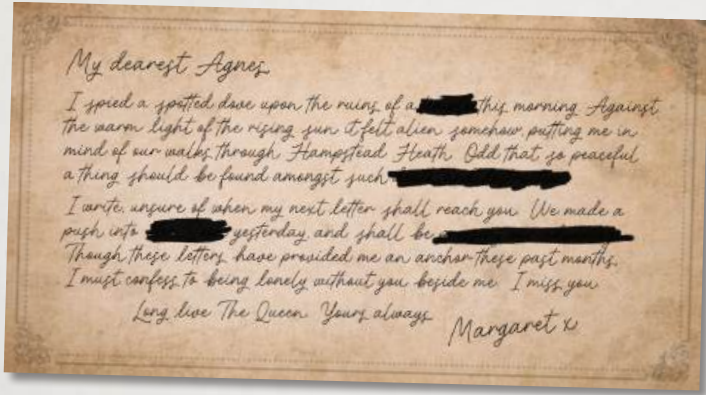 My dearest Agnes
I spied a spotted dove upon the ruins of a this morning Against
the warm light of the rising sun it felt alien somehow, putting me in
mind of our walks through Hampstead Heath Odd that so peaceful
a thing should be found amongst such
I write, unsure of when my next letter shall reach you We made a
push into yesterday and shall be
Though these letters have provided me an anchor these past months,
I must confess to being lonely without you beside me I miss you
Long live The Queen Yours always
Margaret x